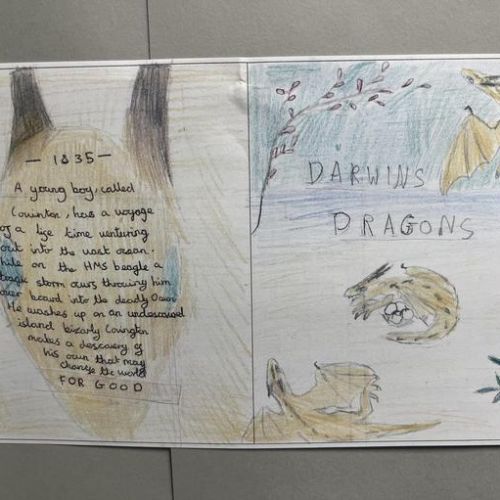 — 1835 —
A young boy, called
Covinton, has a voyage
of a life time venturing
out into the vast ocean.
hile on the HMS beagle a
storm ours throwing him
over board into the deadly
He washes up on an
island bizarly Covington
makes a descovery of
his own that may
change the world
FOR GOOD
DARWINS
DRAGONS